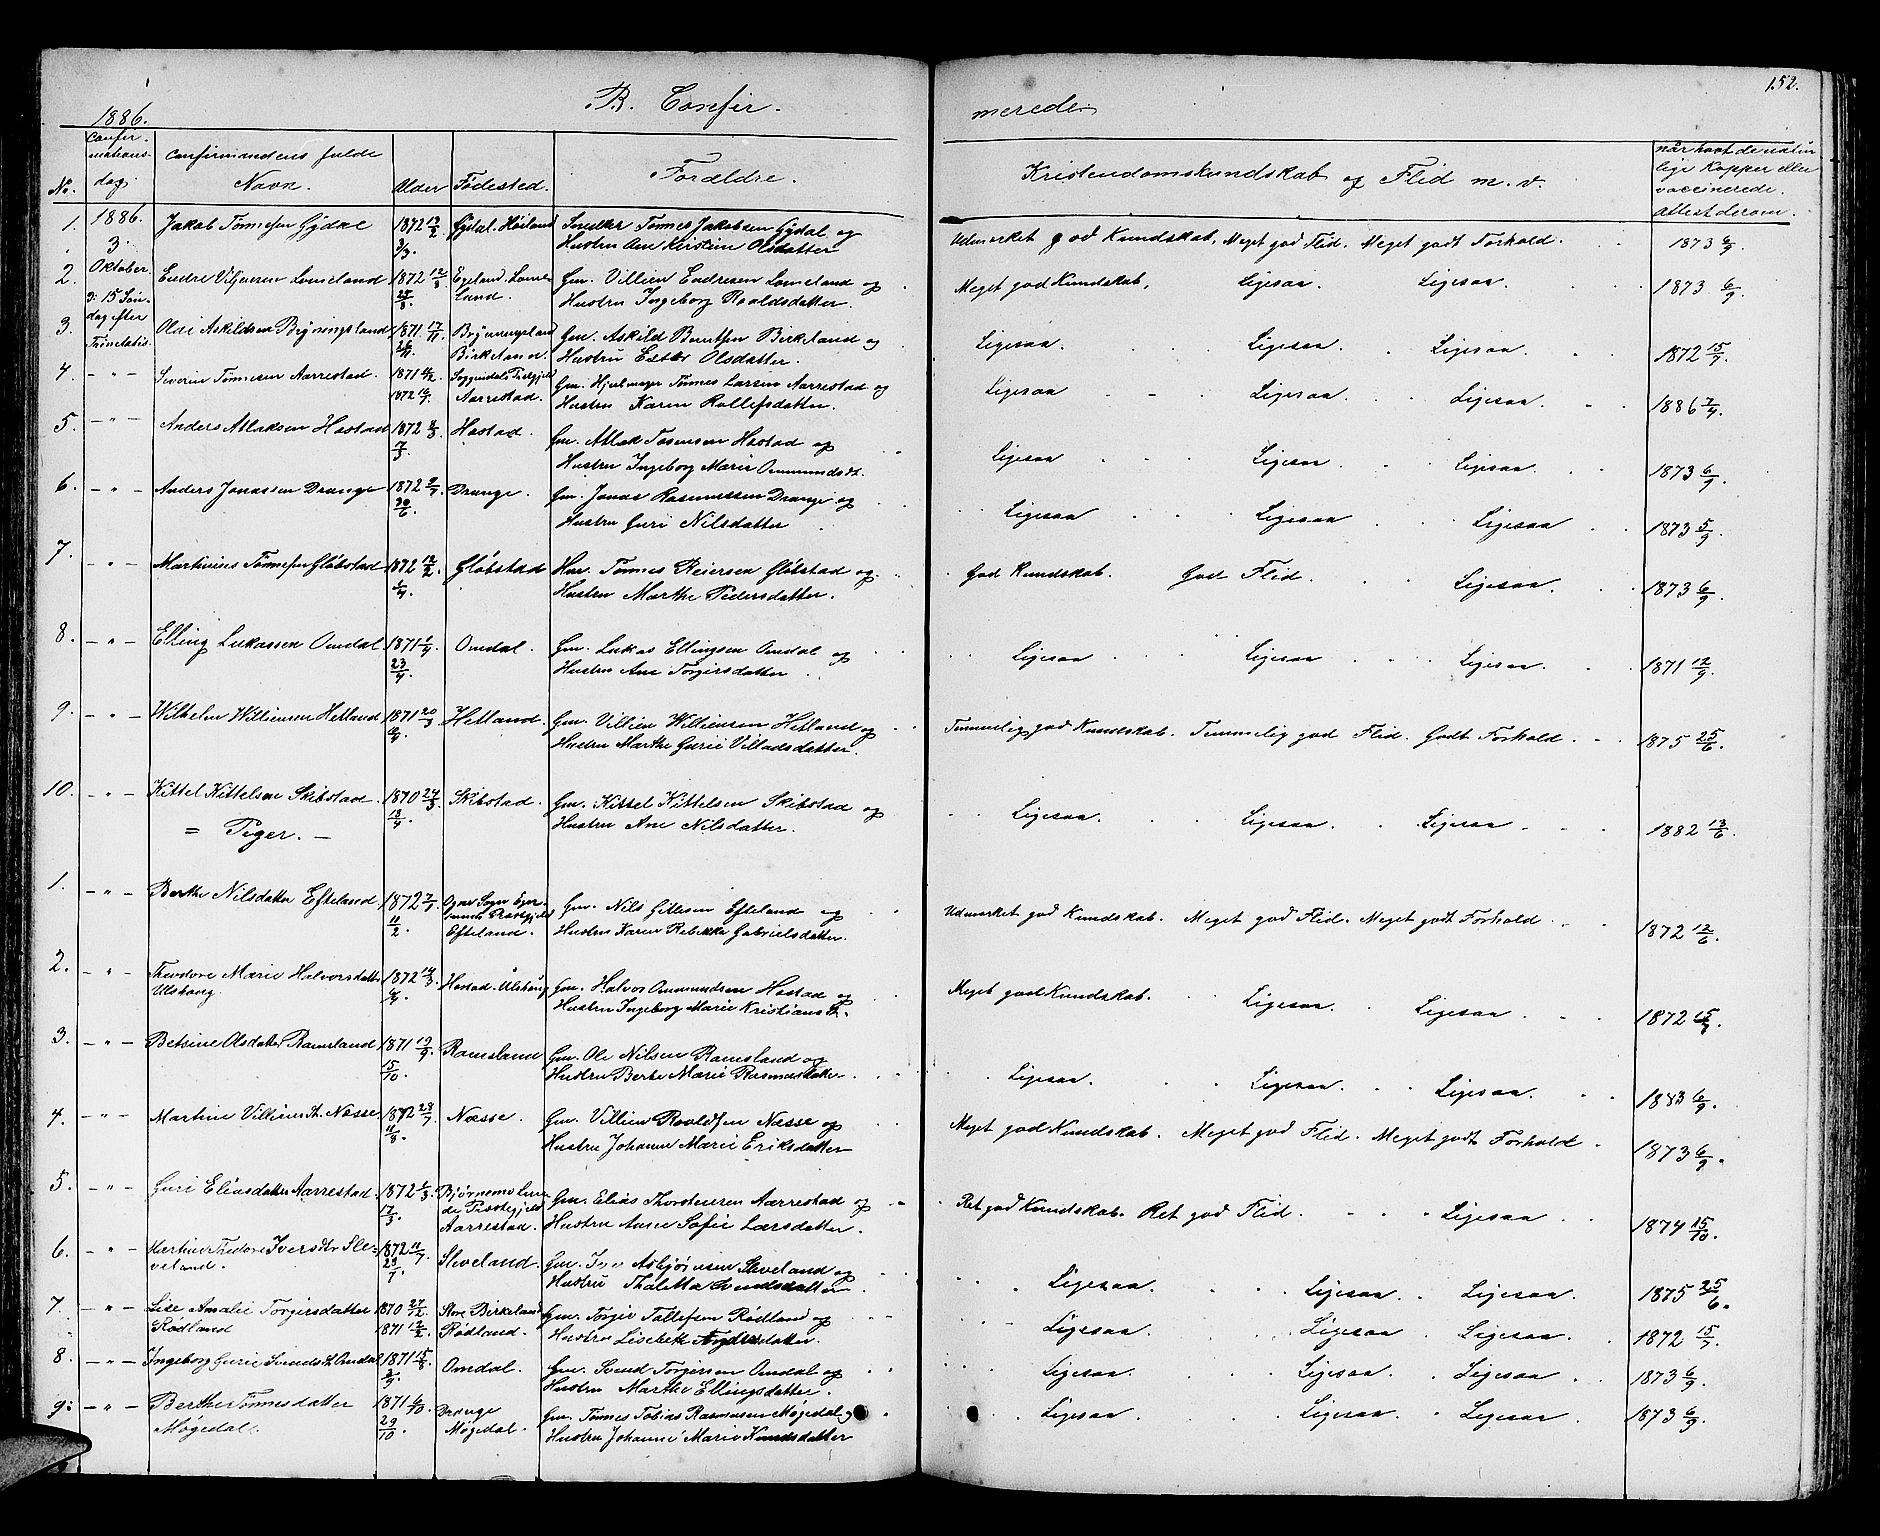 152.
1886.
B. Confir-
merede
No.
Confir-
mations-
dag.
Confirmandens fulde
Navn.
Alder
Fødested.
Forældre.
Kristendomskundskab og Flid m. v.
lige Kopper eller
vaccinerede.
Attest derom.
1. 1886. Jakob Tønnesen Gydal 1872 Gydal. Høiland Smelker Tønnes Jakobsen Gydal og
3. Hustru Ane Kirstine Olsdatter
Udmærket god Kundskab. Meget god Flid. Meget godt Forhold. 1873 6/9.
2. Oktober. Endre Viljensen Lomeland 1872 12/8 Egeland. Lome- Gm. Villien Endresen Lomeland og
25/8 land. Hustru Ingeborg Roaldsdatter.
Meget god Kundskab. Ligesaa. Ligesaa. 1873 6/9.
ɔ: 15 Søn-
dag efter
Trinitatis.
3. Askildsen Bryningsland 1871 17/11 Bryningsland Gm. Askild Berntsen Birkeland og
26/11. Birkeland. Hustru Ester Olsdatter.
Ligesaa. Ligesaa. Ligesaa. 1872 15/9.
4. - " - Severin Tønnesen Aarrestad. 1871 Soggendals Præstgjeld Gm. Hjulmager Tønnes Larsen Aarrestad og
1872 Aarrestad. Hustru Karen Rollefsdatter.
Ligesaa Ligesaa. Ligesaa. 1886 7/4.
5. - " - Anders Atlaksen Hostad 1872 Hostad. Gm. Atlak Tosensen Hostad og
7/3 Hustru Ingeborg Marie Ommundsdt.
Ligesaa Ligesaa Ligesaa. 1873 6/9.
6. - " - Anders Jonassen Drange 1872 Drange. Gm. Jonas Rasmussen Drange og
20/6. Hustru Guri Nilsdatter
Ligesaa Ligesaa Ligesaa 1873 5/9.
7. - " - Martinius Tønnesen Gløbstad 1872 12/2. Gløbstad Tønnes Reiersen Gløbstad og
1/4. Hustru Marthe Pedersdatter.
God Kundskab. God Flid. Ligesaa. 1873 6/9.
8. - " - Elling Lukassen Omdal 1871 1/4 Omdal. Gm. Lukas Ellingsen Omdal og
23/4. Hustru Ane Torgersdatter
Ligesaa Ligesaa Ligesaa. 1871 12/9.
9. - " - Wilhelm Williensen Hetland 1871 20/3 Hetland. Gm. Villien Williensen Hetland og
Hustru Marthe Gurie Villadsdatter.
Temmelig god Kundskab. Temmelig god Flid. Godt Forhold. 1875 25/6.
10. - " - Kittel Kittelsen Skibstad. 1870 27/3 Skibstad. Gm. Kittel Kittelsen Skibstad og
18/4. Hustru Ane Nilsdatter.
Ligesaa. Ligesaa. Ligesaa. 1882 13/6.
= Piger. -
1. - " - Berthe Nilsdatter Efteland 1872 7/1. Ogne Sogn Eger- Gm. Nils Gitlesen Efteland og
11/2. sunds Præstgjeld
Efteland. Hustru Karen Rebekke Gabrielsdatter.
Udmærket god Kundskab. Meget god Flid. Meget godt Forhold. 1872 12/6.
2. - " - Theodore Marie Halvorsdatter 1872 14/3. Hostad. Ulshaug Gm. Halvor Ommundsen Hostad og
Ulshaug. Hustru Ingeborg Marie Kristiansdt.
Meget god Kundskab. Ligesaa. Ligesaa. 1872 15/9.
3. - " - Betsine Olsdatter Ramsland 1871 19/9. Ramsland Gm. Ole Nilsen Ramsland og
15/10. Hustru Berte Marie Rasmusdatter
Ligesaa. Ligesaa. Ligesaa. 1883 6/9.
4. - " - Martine Villiensdt. Næsse. 1872 28/7 Næsse. Gm. Villien Roaldsen Næsse og
11/8. Hustru Johanne Marie Eriksdatter
Meget god Kundskab. Meget god Flid. Meget godt Forhold 1873 6/9.
5. - " - Guri Eliasdatter Aarrestad. 1872 1/3. Bjørnemo Lun- Gm. Elias Thorstensen Aarrestad og
17/3. de Præstegjeld
Aarrestad. Hustru Anne Sofie Larsdatter.
Ret god Kundskab. Ret god Flid. Ligesaa 1874 15/10.
6. - " - Martine Thedore Iversdtr Sle- 1872 11/7 Sleveland. Gm. Asbjørnsen Sleveland og
veland. 29/7. Hustru Thaletta Svendsdatter
Ligesaa Ligesaa. Ligesaa. 1875 25/6.
7. - " - Lise Amalie Torgirsdatter 1870 27/12. Store Birkeland Gm. Torger Tallefsen Rødland og
Rødland 1871 12/2. Rødland. Hustru Lisebeth Andersdatter.
Ligesaa. Ligesaa Ligesaa. 1872 15/9.
8. - " - Ingeborg Gurie Svendsdt. Omdal 1871 15/8 Omdal. Gm. Svend Torgersen Omdal og
2/9. Hustru Marthe Ellingsdatter.
Ligesaa. Ligesaa Ligesaa 1873 6/9.
9. - " - Berthe Tønnesdatter 1871 6/10. Drange Gm. Tønnes Tobias Rasmusen Møgedal og
Møgedal. 29/10. Møgedal. Hustru Johanne Marie Knudsdatter
Ligesaa Ligesaa. Ligesaa 1873 6/9.